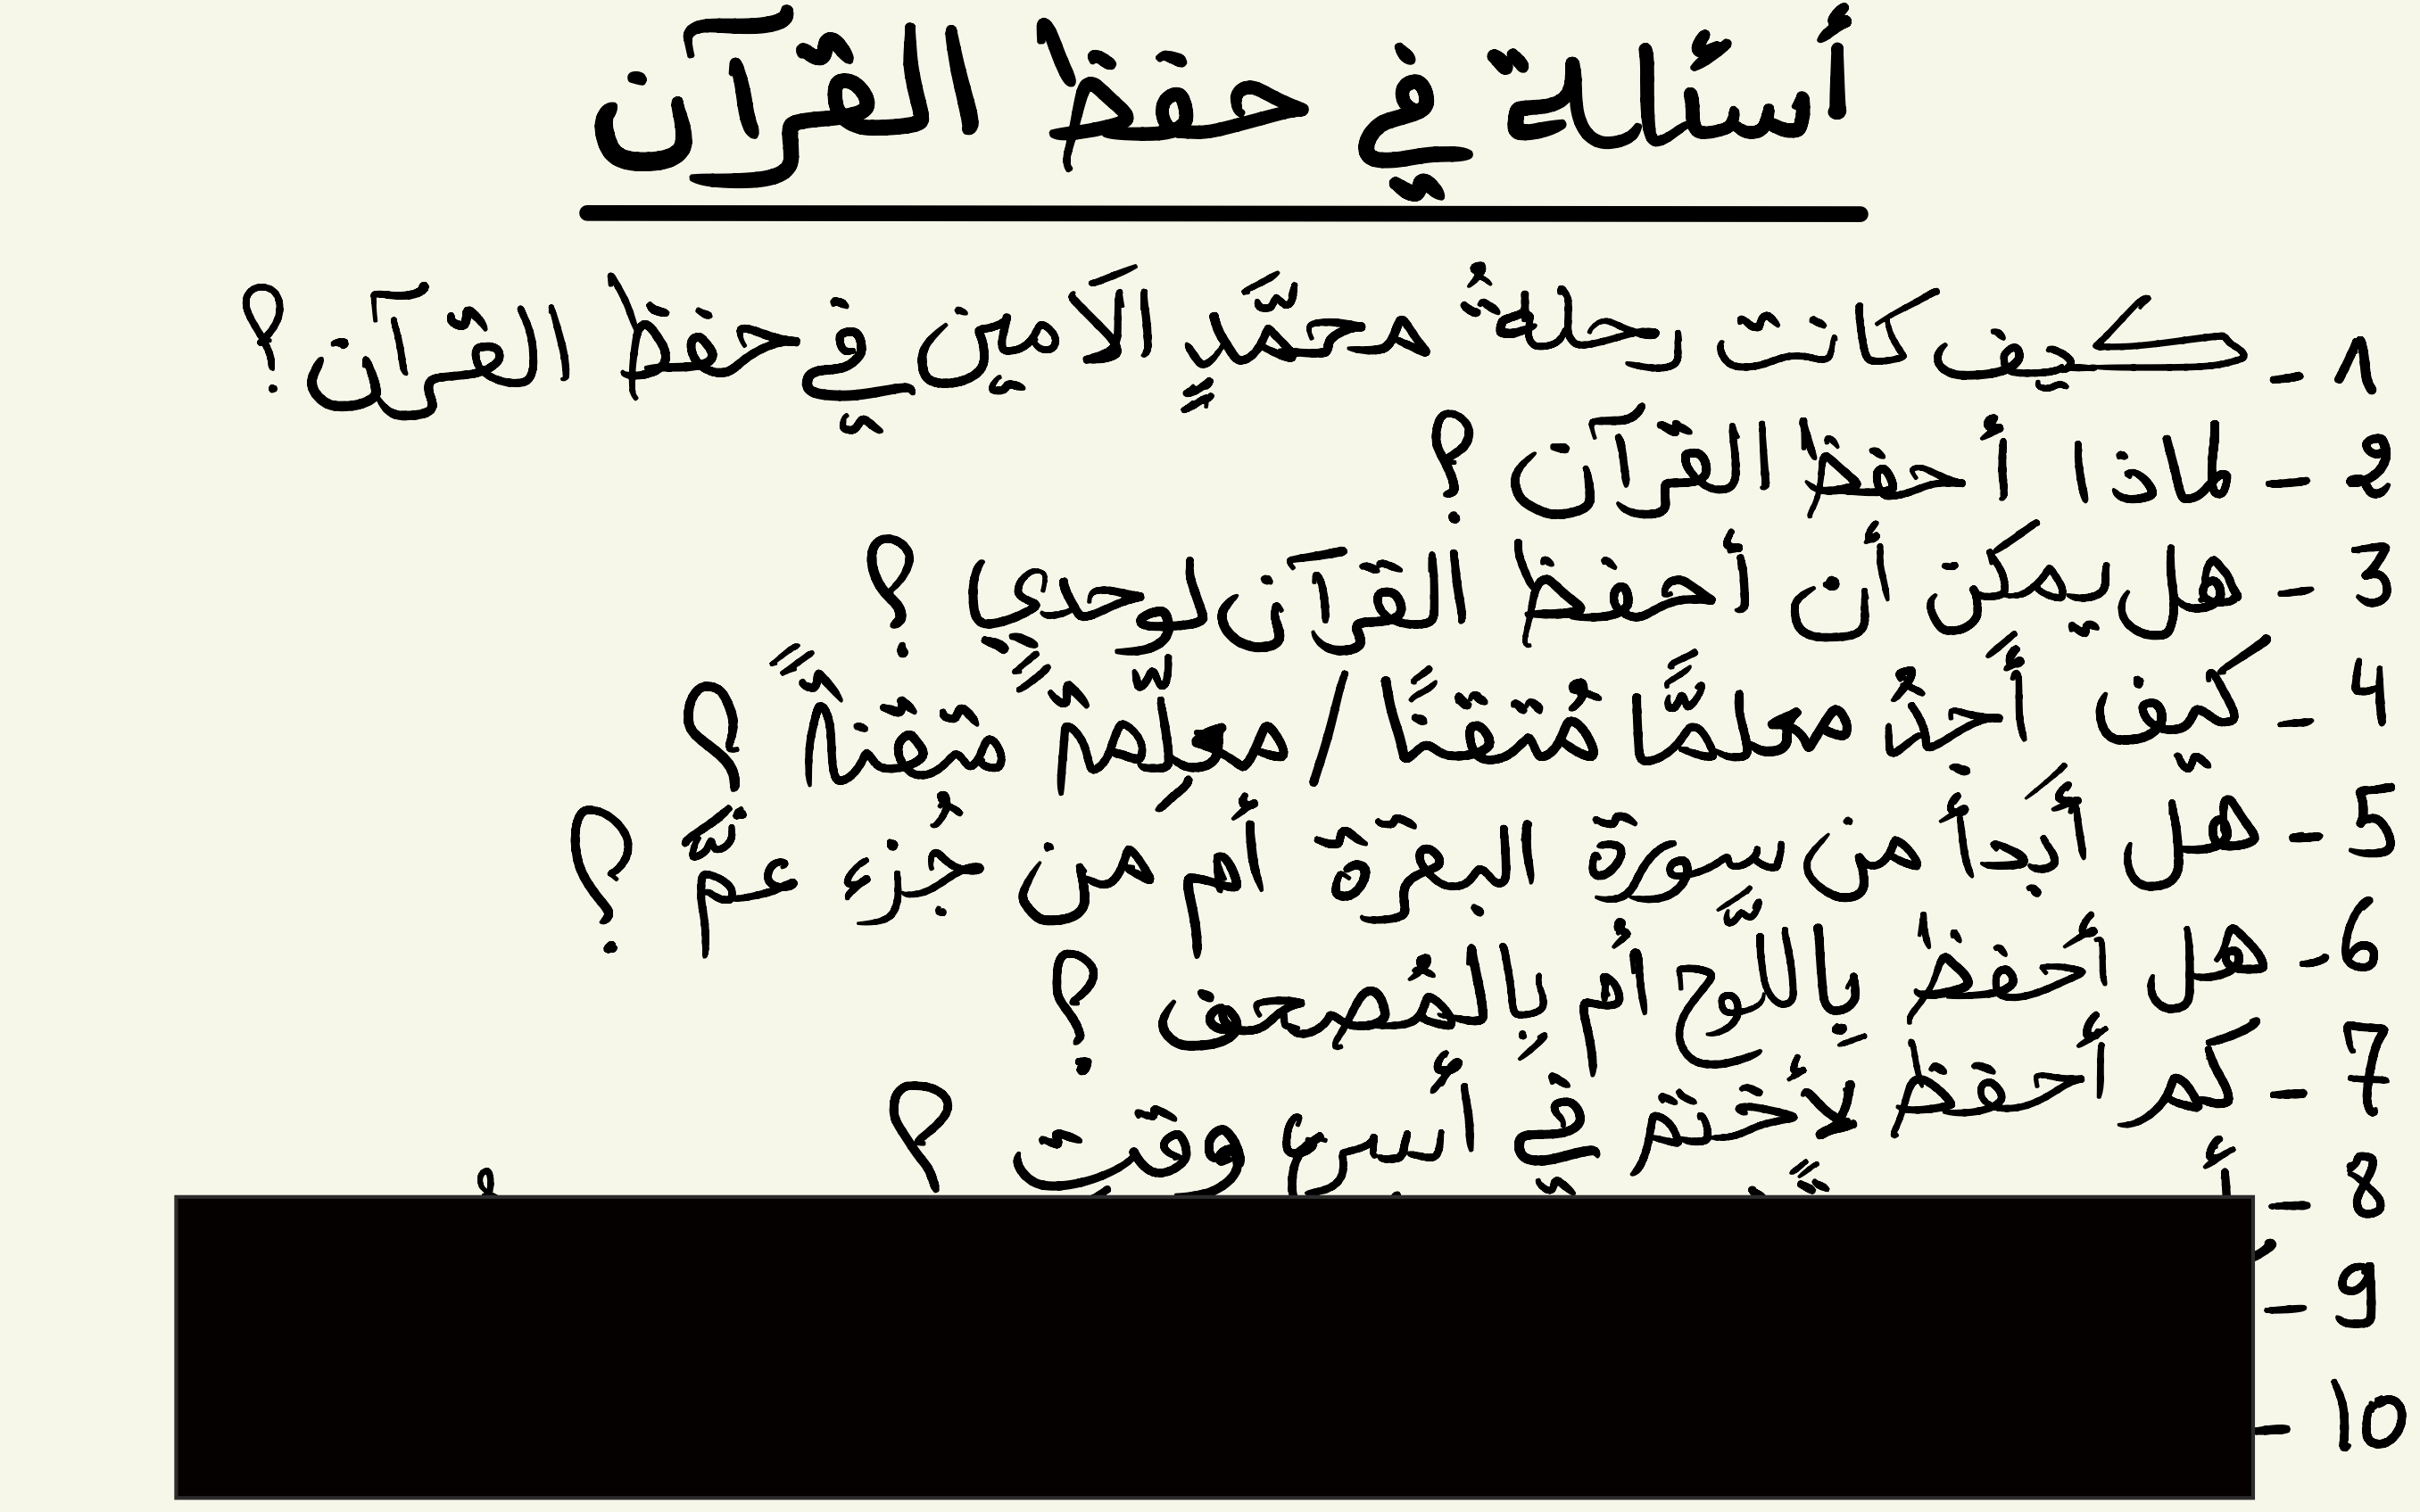 أسئلة في حفظ القرآن
1 - كيف كانت رحلةُ محمَّدٍ الَأمين في حفظ القرآن؟
2 - لماذا أحفظ القرآن؟
3 - هل يمكن أن أحفظ القرآن لوحدي؟
4 - كيف أَجِدُ معلمًّا مُتقنًا / معلِّمةً متقنةً؟
5 - هل أَبدأ من سورة البقرة أم من جُزءِ عمَّ؟
6 - هل أَحفظ بِاللَّوح أم بِالمُصحف؟
7 - كم أَحفظ لأختم في أسرع وقت؟
8 -
9 -
10 -